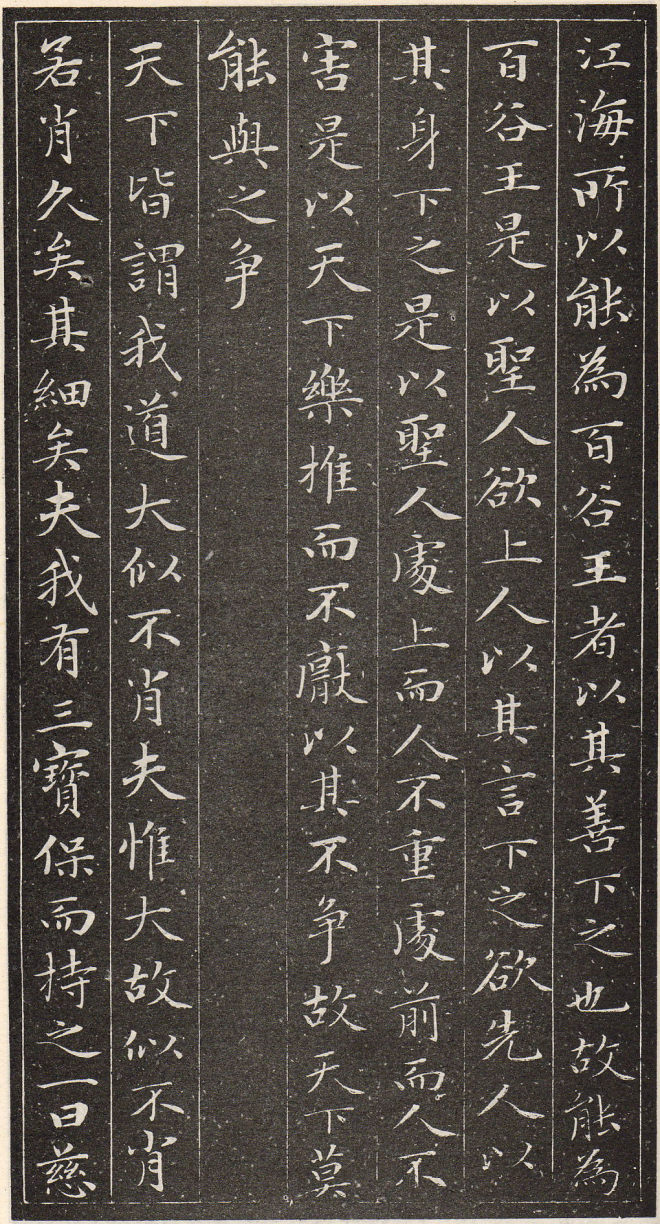 江海所以能為百谷王者以其善下之也故能為
百谷王是以聖人欲上人以其言下之欲先人以
其身下之是以聖人處上而人不重處前而人不
害是以天下樂推而不厭以其不爭故天下莫
能與之爭
天下皆謂我道大似不肖夫惟大故似不肖
若肖久矣其細矣夫我有三寶保而持之一曰慈